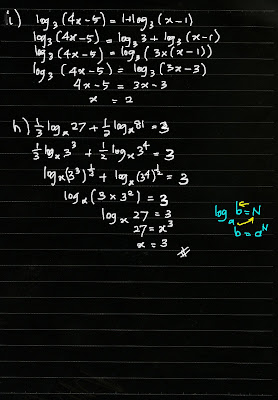 i) log₃(4x-5) = 1+log₃(x-1)
log₃(4x-5) = log₃3 + log₃(x-1)
log₃(4x-5) = log₃(3x(x-1))
log₃(4x-5) = log₃(3x-3)
4x-5 = 3x-3
x = 2
h) 1/3 logₓ27 + 1/2 logₓ81 = 3
1/3 logₓ3³ + 1/2 logₓ3⁴ = 3
logₓ(3³)^1/3 + logₓ(3⁴)^1/2 = 3
logₓ(3 x 3²) = 3
logₓ27 = 3
27 = x³
x = 3
logₐ b = N
b = aᴺ